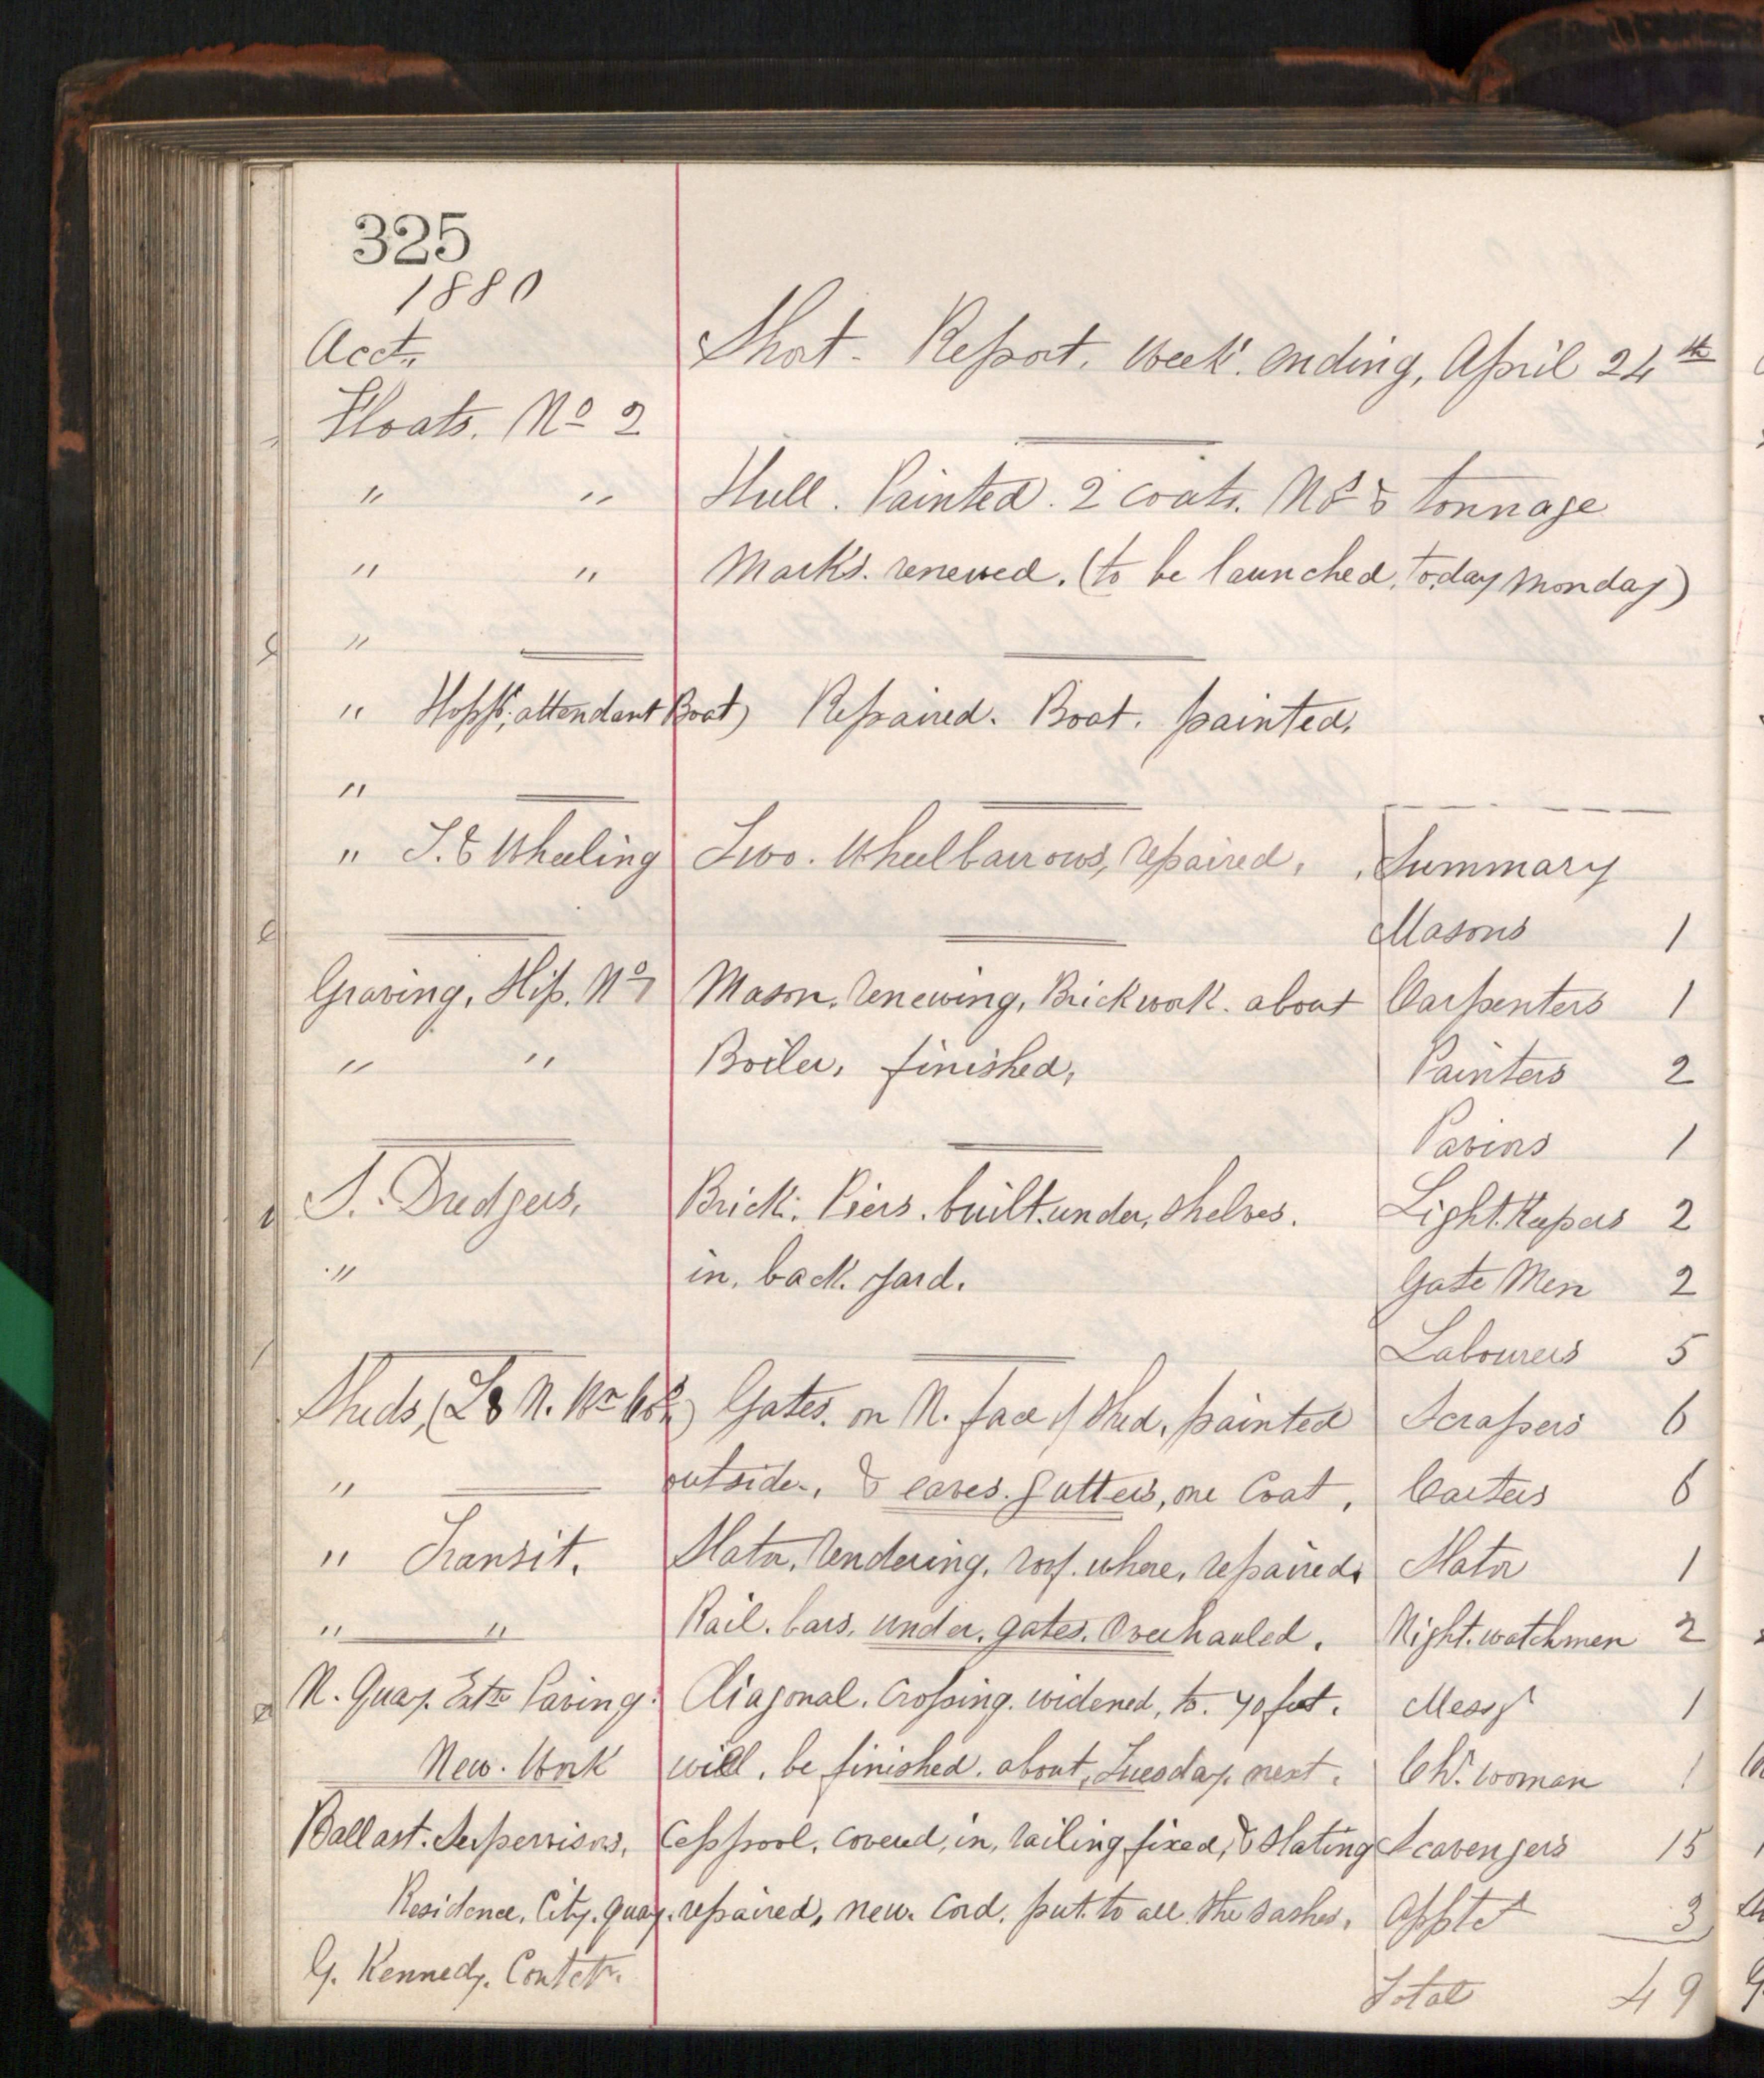 325
1880
Acct.
Short Report. Week ending, April 24th
Floats. No 2
" " Hull. Painted. 2 coats. No & tonnage
" " Marks. renewed. (to be launched, today Monday)
"
" Hopps, attendant Boat) Repaired. Boat. painted.
"
" S. & Wheeling Two. Wheelbarrows, repaired. Summary
Masons 1
Graving, Slip. No 1 Mason, renewing, Brickwork. about Carpenters 1
" " Boiler, finished, Painters 2
Paviors 1
S. Dredgers, Brick. Piers. built. under, shelves. Light. Keepers 2
" in, back. yard. Gate Men 2
Labourers 5
Sheds, (L & N. Wn Co) Gates. on N. face of Shed, painted Scrapers 6
" outside, & eaves. gutters, one Coat, Carters 6
" Transit. Slater, rendering, roof. where, repaired. Slater 1
" " Rail. bars, under, gates. Overhauled. Night. watchmen 2
N. Quay. Extn Paving. Diagonal. Crossing. widened, to. 40 feet. Messr 1
New. Work will. be finished. about, Tuesday. next. Chr. woman 1
Ballast. Supervisors, Cesspool, covered, in, railing fixed, & Slating Scavengers 15
Residence, City. Quay. repaired, new. Cord. put. to all the sashes, Apptct 3
G. Kennedy. Contctr. Total 49